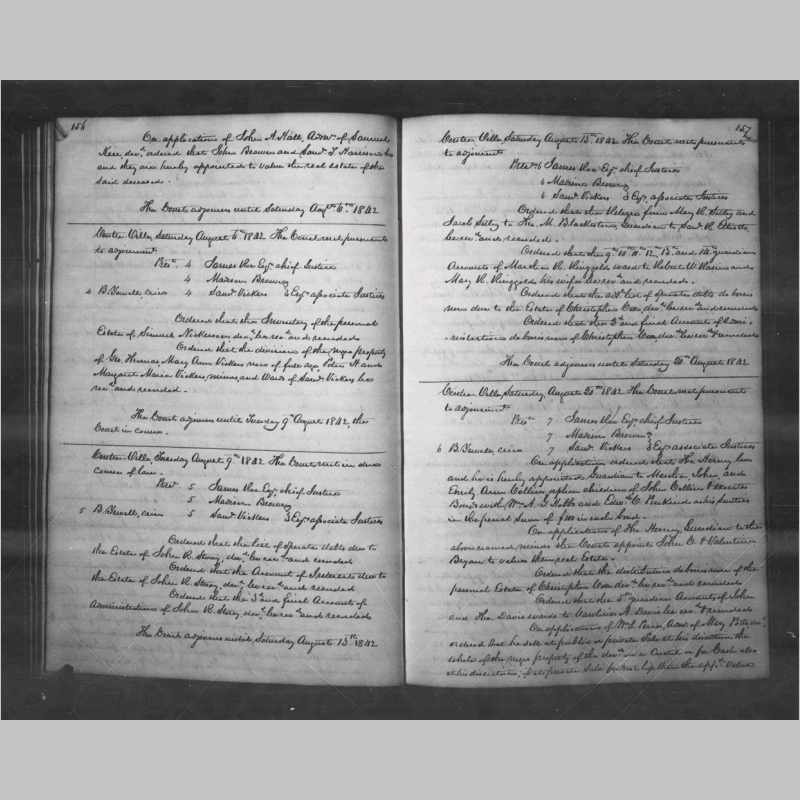 156
On application of John A. Hall, Adm.r of Samuel
dec.d ordered that John Brown and Sam.l T. Harrison be
and they are hereby appointed to value the real estate of the
said deceased.
The Court adjourns until Saturday Aug.st 6.th 1842
Centre Ville, Saturday August 6.th 1842 The Court met pursuant
to adjournment
Pres.t 4 James Esq.r chief Justice
4 Madison Brown
4 B. Newell, crier 4 Sam.l Vickers Esq.rs associate Justices
Ordered that the Inventory of the personal
Estate of Nickerson dec.d be rec.d and recorded
Ordered that the division of the negro property
of Geo. Thomas Mary Ann Vickers and
Margaret Maria Vickers, minors, and Wards of Sam.l Vickers be
rec.d and recorded.
The Court adjourns until Tuesday 9.th August 1842, the
Court in course
Centre Ville, Tuesday August 9.th 1842 The Court met in due
course of law.
Pres.t 5 James Esq.r chief Justice
5 Madison Brown
5 B. Newell, crier 5 Sam.l Vickers Esq.rs associate Justices
Ordered that the list of Sperate debts due to
the Estate of John R. Story, dec.d be rec.d and recorded
Ordered that the Account of due to
the Estate of John R. Story dec.d be rec.d and recorded
Ordered that the 3.d and final Accounts of
Administration of John R. Story dec.d be rec.d and recorded
The Court adjourns until Saturday August 13.th 1842
157
Centre Ville, Saturday August 13.th 1842 The Court met pursuant
to adjournment
Pres.t 6 James Esq.r chief Justice
6 Madison Brown
6 Sam.l Vickers Esq.rs associate Justices
Ordered that the Release from Mary R. and
Jacob to Tho. M. Blackiston, Guardian to Sam.l R.
be rec.d and recorded.
Ordered that the 9.th 10.th 11.th 12.th 13.th and 14.th guardian
Accounts of Ringgold ward to Robert W. and
Mary R. Ringgold his wife be rec.d and recorded.
Ordered that the list of Sperate debts de bonis
non due to the Estate of Christopher Cox, dec.d be rec.d and recorded
Ordered that the 3.d and final Account of Admi-
nistration de bonis non of Christopher Cox, dec.d be rec.d & recorded
The Court adjourns until Saturday 20.th August 1842
Centre Ville, Saturday August 20.th 1842 The Court met pursuant
to adjournment
Pres.t 7 James Esq.r chief Justice
7 Madison Brown
6 B. Newell, crier 7 Sam.l Vickers Esq.rs associate Justices
On application ordered that Tho. be
and he is hereby appointed Guardian to John, and
Emily Ann Collins, orphan children of John Collins & executes
Bonds with Wm. A. G. Hobbs and Edw.d C. as his Sureties
in the penal Sum of in each bond.
On application of Tho. Guardian to the
above named minors the Court appoint John & Valentine
Bryan to value their real Estate.
Ordered that the distribution de bonis non of the
personal Estate of Christopher Cox dec.d be rec.d and recorded
Ordered that the guardian Accounts of John
and Tho. Davis wards to A. Davis be rec.d & recorded
On application of Wm. Adm.r of Mary dec.d
ordered that he sell at public or private Sale at his discretion the
whole of the negro property of the dec.d on a Credit or for Cash also
at his discretion; if at private Sale for not less than the app.d value